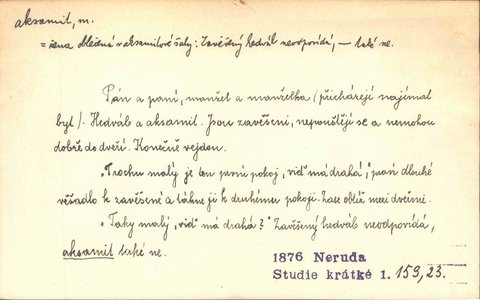 aksamit, m.
= žena oblečená v aksamitové šaty: Zavěšený hedváb neodpovídá, — také ne.
Pán a paní, manžel a manželka (přicházejí najímat
byt). Hedváb a aksamit. Jsou zavěšeni, nepouštějí se a nemohou
dobře do dveří. Konečně vejdou.
„Trochu malý je ten první pokoj, viď má drahá", praví dlouhé
věšadlo k zavěšené a táhne ji k druhému pokoji. Zase obtíž mezi dveřmi.
„Taky malý, viď má drahá?" Zavěšený hedváb neodpovídá,
aksamit také ne.
1876 Neruda
Studie krátké 1. 159, 23.